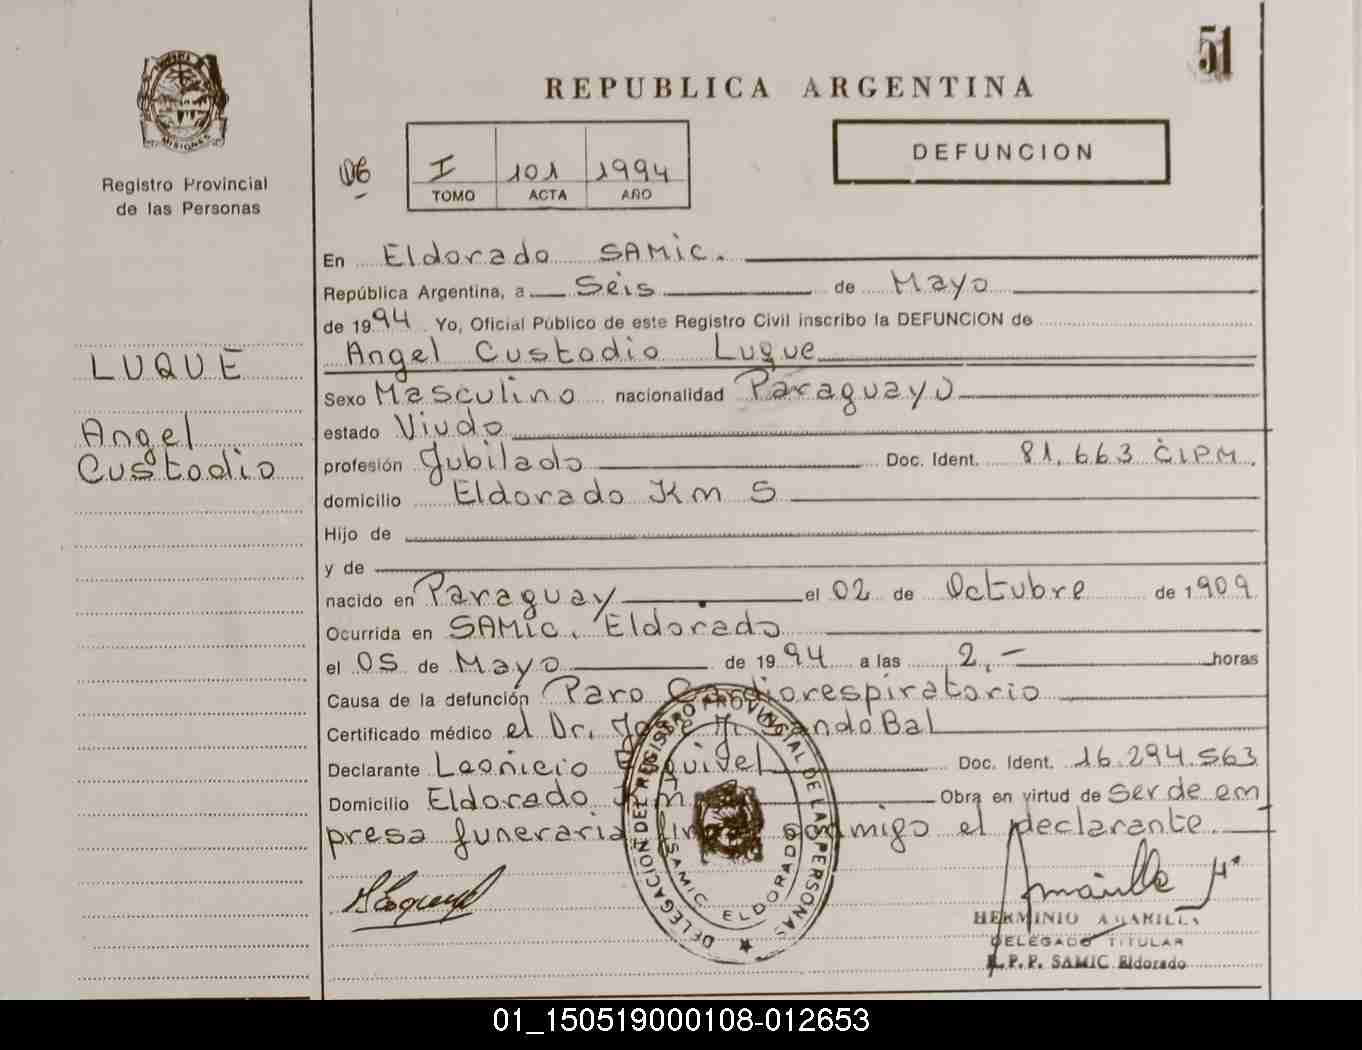 51
REPUBLICA ARGENTINA
MISIONES
Registro Provincial
de las Personas
06
I 101 1994
TOMO ACTA AÑO
DEFUNCION
LUQUE
Angel
Custodio
En Eldorado SAMIC.
República Argentina, a Seis de Mayo
de 1994 Yo, Oficial Público de este Registro Civil inscribo la DEFUNCION de
Angel Custodio Luque
Sexo Masculino nacionalidad Paraguayo
estado Viudo
profesión Jubilado Doc. Ident. 81.663 CIPM.
domicilio Eldorado Km 5
Hijo de
y de
nacido en Paraguay el 02 de Octubre de 1909
Ocurrida en SAMIC. Eldorado
el 05 de Mayo de 1994 a las 2,- horas
Causa de la defunción Paro Cardiorespiratorio
Certificado médico el Dr.
Declarante Doc. Ident. 16.294.563
Domicilio Eldorado Km Obra en virtud de ser de em
presa funeraria firma conmigo el declarante.
DELEGACION DEL REGISTRO PROVINCIAL DE LAS PERSONAS
SAMIC ELDORADO
HERMINIO AMARILLA
DELEGADO TITULAR
R.P.P. SAMIC Eldorado
01_150519000108-012653